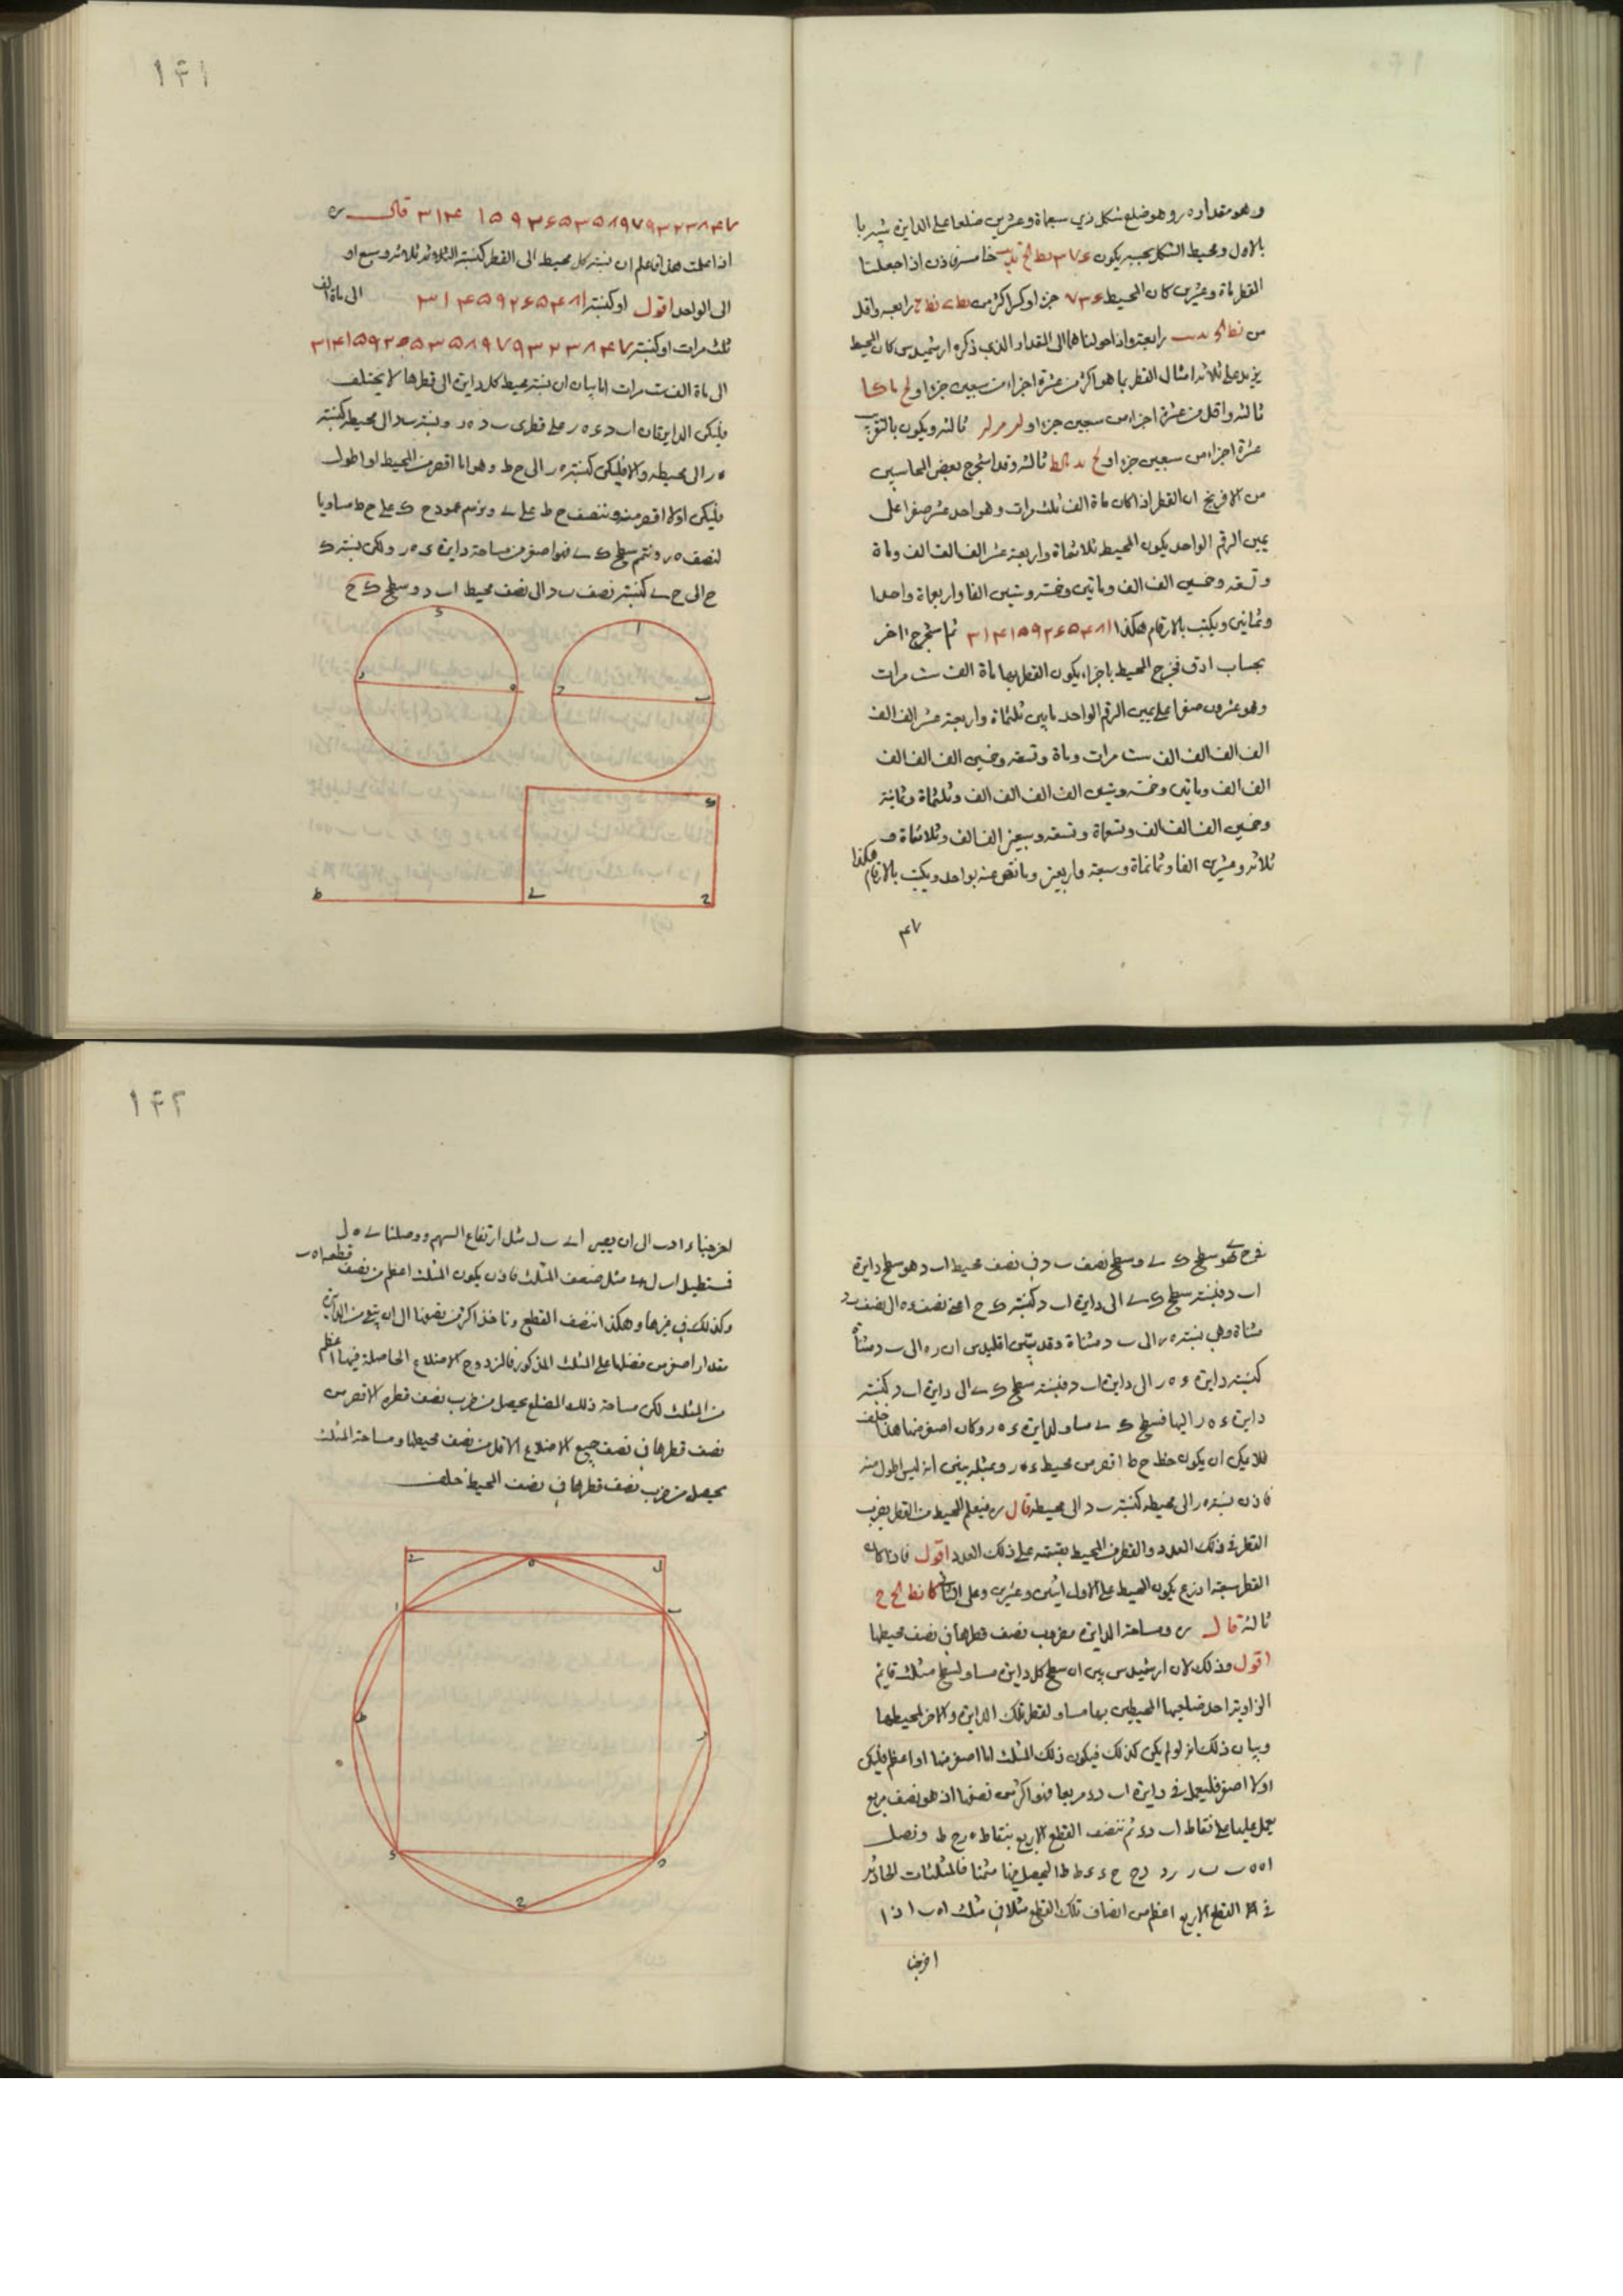 وهو مقداره ر وهو ضلع شكل ذي سبعماة وعشرين ضلعا على الدايرة شبيه با
بالاول ومحيط الشكل بحسبه يكون خامسة فاذن اذا جعلنا
القطر ماة وعشرين كان المحيط جزءا وكسرا اكثر من رابعه واقل
من رابعة واذا حولناهما الى المقدار الذي ذكره ارشميدس كان المحيط
يزيد على ثلاثة امثال القطر بما هو اكثر من عشرة اجزاء من سبعين جزءا و
ثالثه واقل من عشرة اجزاء من سبعين جزءا و ثالثه ويكون بالتقريب
عشرة اجزاء من سبعين جزءا و ثالثه وقد استخرج بعض المحاسبين
من الافرنج ان القطر اذا كان ماة الف ثلث مرات وهو احد عشر صفرا على
يمين الرقم الواحد يكون المحيط ثلاثماة واربعة عشر الف الف الف وماة
وتسعة وخمسين الف الف وماتين وخمسة وستين الفا واربعماة واحدا
وثمانين ويكتب بالارقام هكذا ٣١۴١٥٩٢۶٥۴٨١ ثم استخرج اخر
بحساب ادق فخرج المحيط باجزاء يكون القطر بها ماة الف ست مرات
وهو عشرون صفرا على يمين الرقم الواحد مابين ثلثماة واربعة عشر الف الف
الف الف الف الف ست مرات وماة وتسعة وخمسين الف الف الف
الف الف وماتين وخمسة وستين الف الف الف الف وثلثماة وثمانية
وخمسين الف الف الف وتسعماة وتسعة وسبعين الف الف وثلاثماة و
ثلاثة وعشرين الفا وثمانماة وسبعة واربعين وما نقص عنه بواحد ويكتب بالارقام هكذا
۴٧
١۴١
٣١۴ ١٥٩٢۶٥٣٥٨٩٧٩٣٢٣٨۴٧ قال
اذا علمت هذا فاعلم ان نسبة كل محيط الى القطر كنسبة الثلاثة ثلاثة وسبع او
الى الواحد اقول او كنسبة ٣١۴١٥٩٢۶٥۴٨١ الى ماة الف
ثلث مرات او كنسبة ٣١۴١٥٩٢۶٥٣٥٨٩٧٩٣٢٣٨۴٧
الى ماة الف ست مرات اما بيان ان نسبة محيط كل دايرة الى قطرها لا يختلف
فليكن الدايرتان اب د ء ه ر على قطري ب د ه ر ونسبة ب د الى محيطه كنسبة
ه ر الى محيطه والا فليكن كنسبة ه ر الى ح ط وهو اما اقصر من المحيط او اطول
فليكن اولا اقصر منه وننصف ح ط على ے ونرسم عمود ح ك على ح ط مساويا
لنصف ه ر ونتم سطح ك ے فهو اصغر من مساحة دايرة ء ه ر ولكن نسبة ك
ح الى ح ے كنسبة نصف ب د الى نصف محيط اب د وسطح ك ح
ء
ا
ر
ه
د
ب
ك
ط
ے
ح
وسطح ك ے وسطح نصف ب د في نصف محيط اب د هو سطح دايرة
اب د فنسبة سطح ك ے الى دايرة اب د كنسبة ك ح اعني نصف ر ه الى نصف ب د
مثناة وهي نسبة ه ر الى ب د مثناة وقد بيّن اقليدس ان ر ه الى ب د مثناة
كنسبة دايرة ء ه ر الى دايرة اب د فنسبة سطح ك ے الى دايرة اب د كنسبة
دايرة ء ه ر اليها فسطح ك ے مساو لدايرة ء ه ر وكان اصغر منها هذا خلف
فلا يمكن ان يكون خط ح ط اقصر من محيط ء ه ر وبمثله يتبين انه ليس اطول منه
فاذن نسبة ه ر الى محيطه كنسبة ب د الى محيطه قال ره فيعلم المحيط من القطر بضرب
القطر في ذلك العدد والقطر من المحيط بقسمته على ذلك العدد اقول فاذا كان
القطر سبعة اذرع يكون المحيط على الاول اثنين وعشرين وعلى الثاني كا نط لح ح
ثالثة قال ره ومساحة الدايرة مضروب نصف قطرها في نصف محيطها
اقول وذلك لان ارشميدس بين ان سطح كل دايرة مساو لسطح مثلث قايم
الزاوية احد ضلعيها المحيطين بها مساو لقطر تلك الدايرة والاخر لمحيطها
وبيان ذلك انه لو لم يكن كذلك فيكون ذلك المثلث اما اصغر منها او اعظم فليكن
اولا اصغر فليعمل في دايرة اب د ء مربعا فهو اكثر من نصفها اذ هو نصف مربع
يعمل عليها على نقاط اب د ء ثم ننصف القطع الاربع بنقاط ه ر ح ط ونصل
ا ه ه ب ب ر ر د د ح ح ء ء ط ط ا ليحصل فيها مثمنا فالمثلثات الحادثة
في القطع الاربع اعظم من انصاف تلك القطع مثلا في مثلث ا ه ب اذا
اخرجنا
١۴٢
اخرجنا ء ا د ب الى ان يصير ا ے ب ل مثل ارتفاع السهم ووصلنا ے ه ل
فمستطيل ا ب ل ے مثل ضعف المثلث فاذن يكون المثلث اعظم من نصف قطعة ا ه ب
وكذلك في غيرها وهكذا ننصف القطع وناخذ اكثر من نصفها الى ان يبقى من الدايرة
مقدار اصغر من فضلها على المثلث المذكور فالمزدوج الاضلاع الحاصلة فيها اعظم
من المثلث لكن مساحة ذلك المضلع يحصل من ضرب نصف قطره الاقصر من
نصف قطرها في نصف جميع الاضلاع الاقل من نصف محيطها ومساحة المثلث
يحصل من ضرب نصف قطرها في نصف المحيط خلف
ے
ه
ل
ا
ب
ط
ر
ء
د
ح